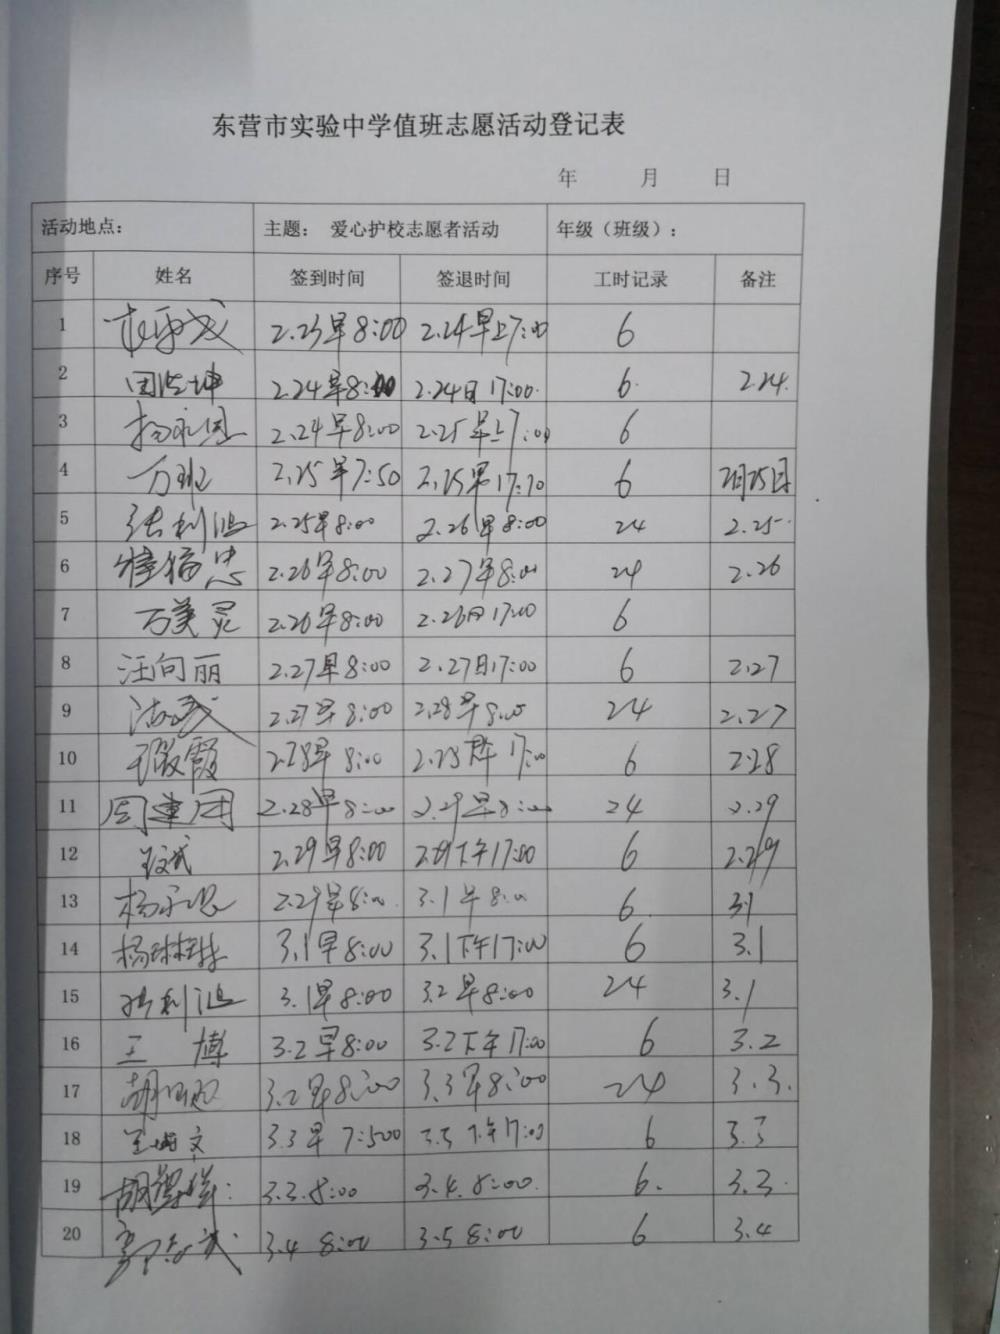 东营市实验中学值班志愿活动登记表
年 月 日
活动地点： 主题： 爱心护校志愿者活动 年级（班级）：
序号 姓名 签到时间 签退时间 工时记录 备注
1 2.23早8:00 2.24早上7:00 6
2 2.24早8:00 2.24日17:00. 6. 2.24.
3 2.24早8:00 2.25早上7:00 6
4 万班 2.25早7:50 2.25 17:10 6 2月25日
5 张利鸿 2.25早8:00 2.26早8:00 24 2.25.
6 2.26早8:00 2.27早8:00 24 2.26
7 万美灵 2.26早8:00 2.26日17:00 6
8 汪向丽 2.27早8:00 2.27日17:00 6 2.27
9 2.27早8:00 2.28早8:00 24 2.27
10 霞 2.28早8:00 2.28 17:00 6 2.28
11 周建国 2.28早8:00 2.29早8:00 24 2.29
12 2.29早8:00 2.29下午17:00 6 2.29
13 2.29早8:00. 3.1早8:00 6. 3.1
14 3.1早8:00 3.1下午17:00 6 3.1
15 张利鸿 3.1早8:00 3.2早8:00 24 3.1
16 王博 3.2早8:00 3.2下午17:00 6 3.2
17 3.2早8:00 3.3早8:00 24 3.3.
18 3.3早7:500 3.3下午17:00 6 3.3
19 3.3.8:00 3.4.8:00. 6. 3.3.
20 3.4 8:00 3.5 8:00 6 3.4